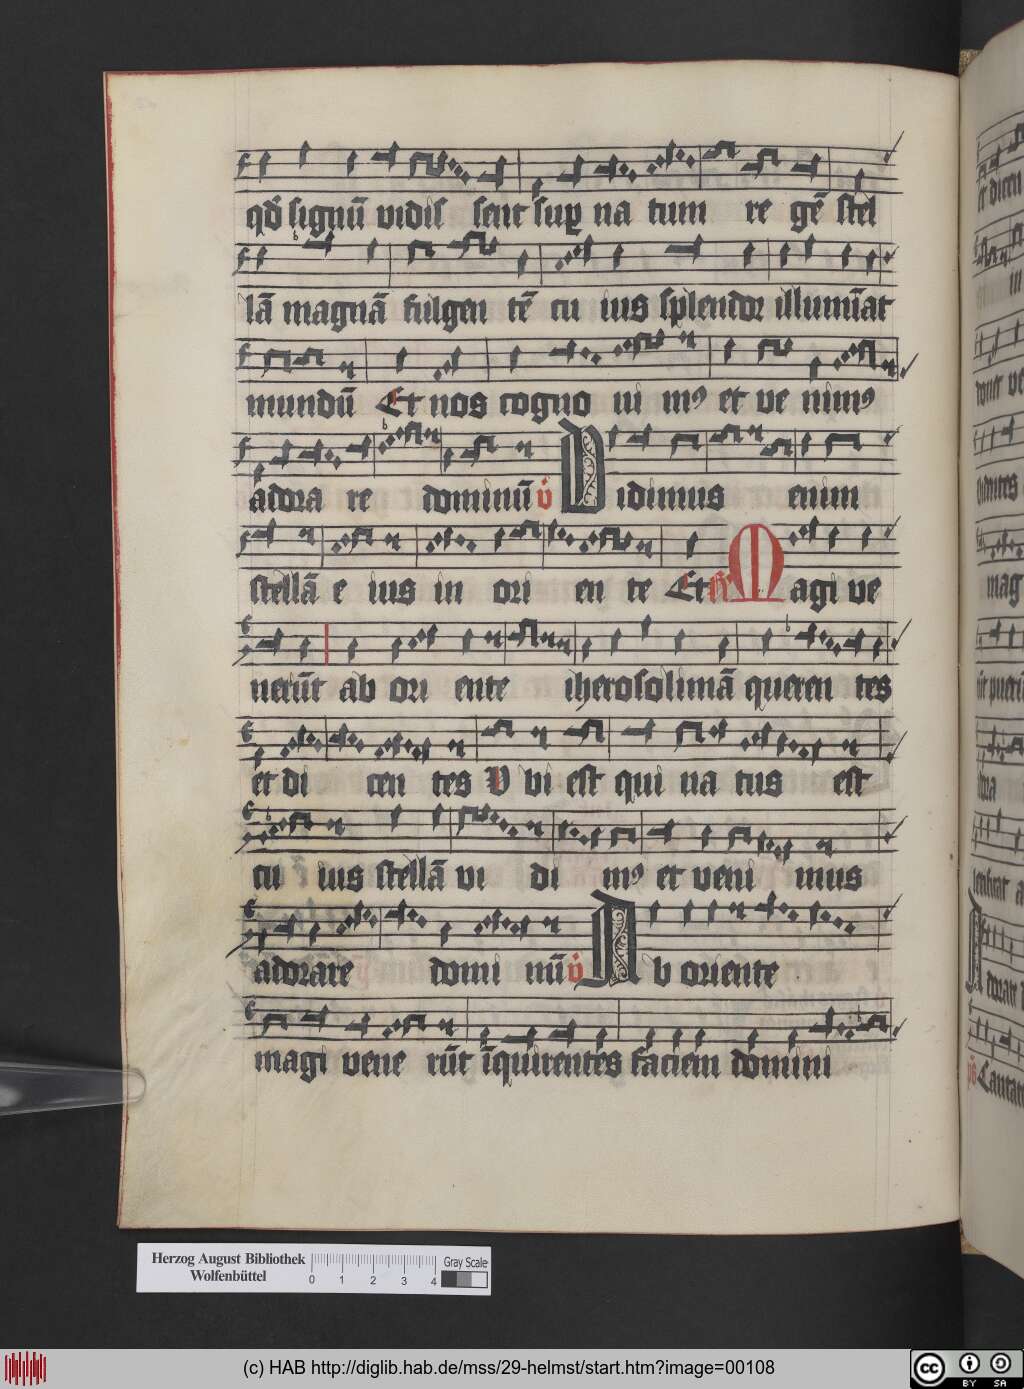 qd̄ signū vidis sent sup na tum re gē stel
lā magnā fulgen tē cu ius splendor illumīat
mundū Et nos cogno ui mꝰ et ve nimꝰ
adora re dominū v̇ Vidimus enim
stellā e ius in ori en te Et R Magi ve
nerūt ab ori ente iherosolimā queren tes
et di cen tes Vbi est qui na tus est
cu ius stellā vi di mꝰ et veni mus
adorare domi nū v̇ Ab oriente
magi vene rūt īquirentes faciem domini
Herzog August Bibliothek
Wolfenbüttel
0 1 2 3 4
Gray Scale
(c) HAB http://diglib.hab.de/mss/29-helmst/start.htm?image=00108
cc BY SA